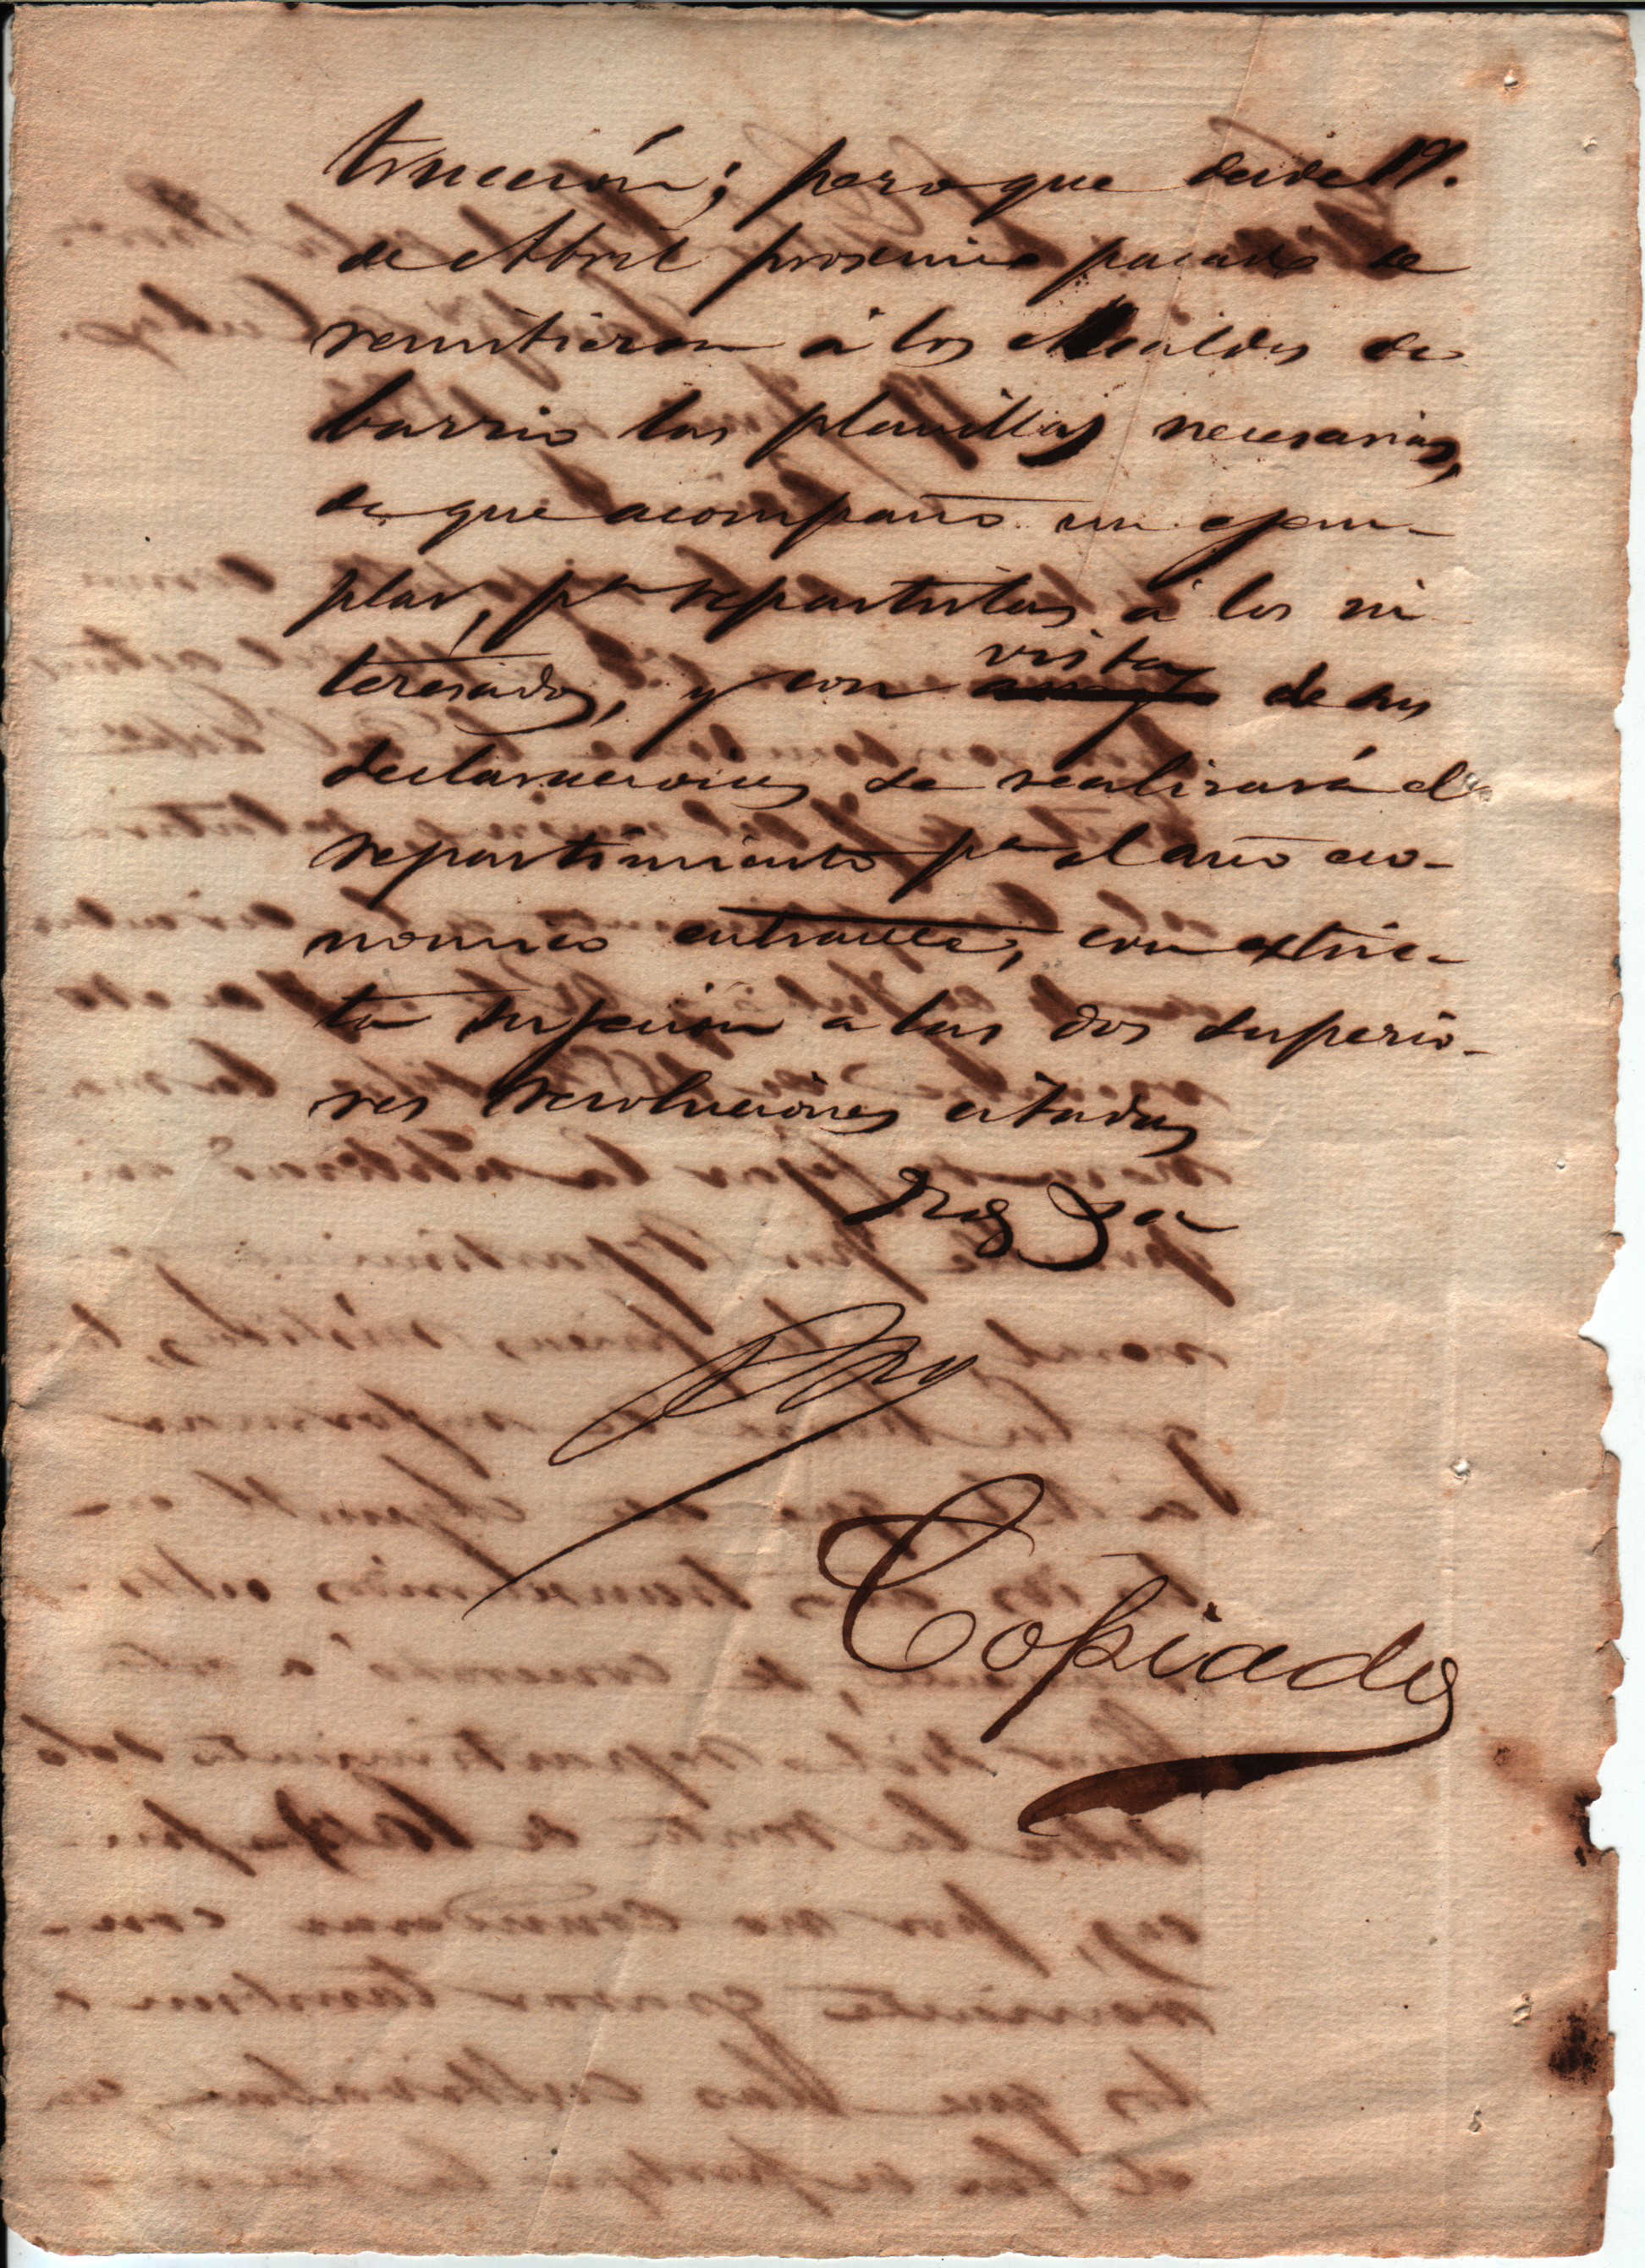 truccion; pero que desde 19.
de Abril procsimo pasado se
remitieron á los Alcaldes de
barrio las planillas necesarias,
de que acompaño un ejem-
plar, pª repartirlas á los in
teresados, y con vista de sus
declaraciones se realisará el
repartimiento pª el año eco-
nomico entrante, con estric-
ta sujecion a las dos superio-
res resoluciones citadas
Copiado